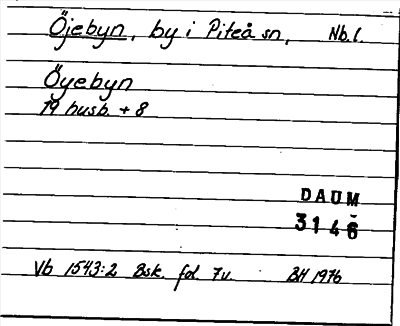 Öjebyn, by i Piteå sn, Nb.l.
Öyebyn
19 husb. + 8
DAUM
3146
Vb 1543:2 Bsk. fol 7v. BH 1976